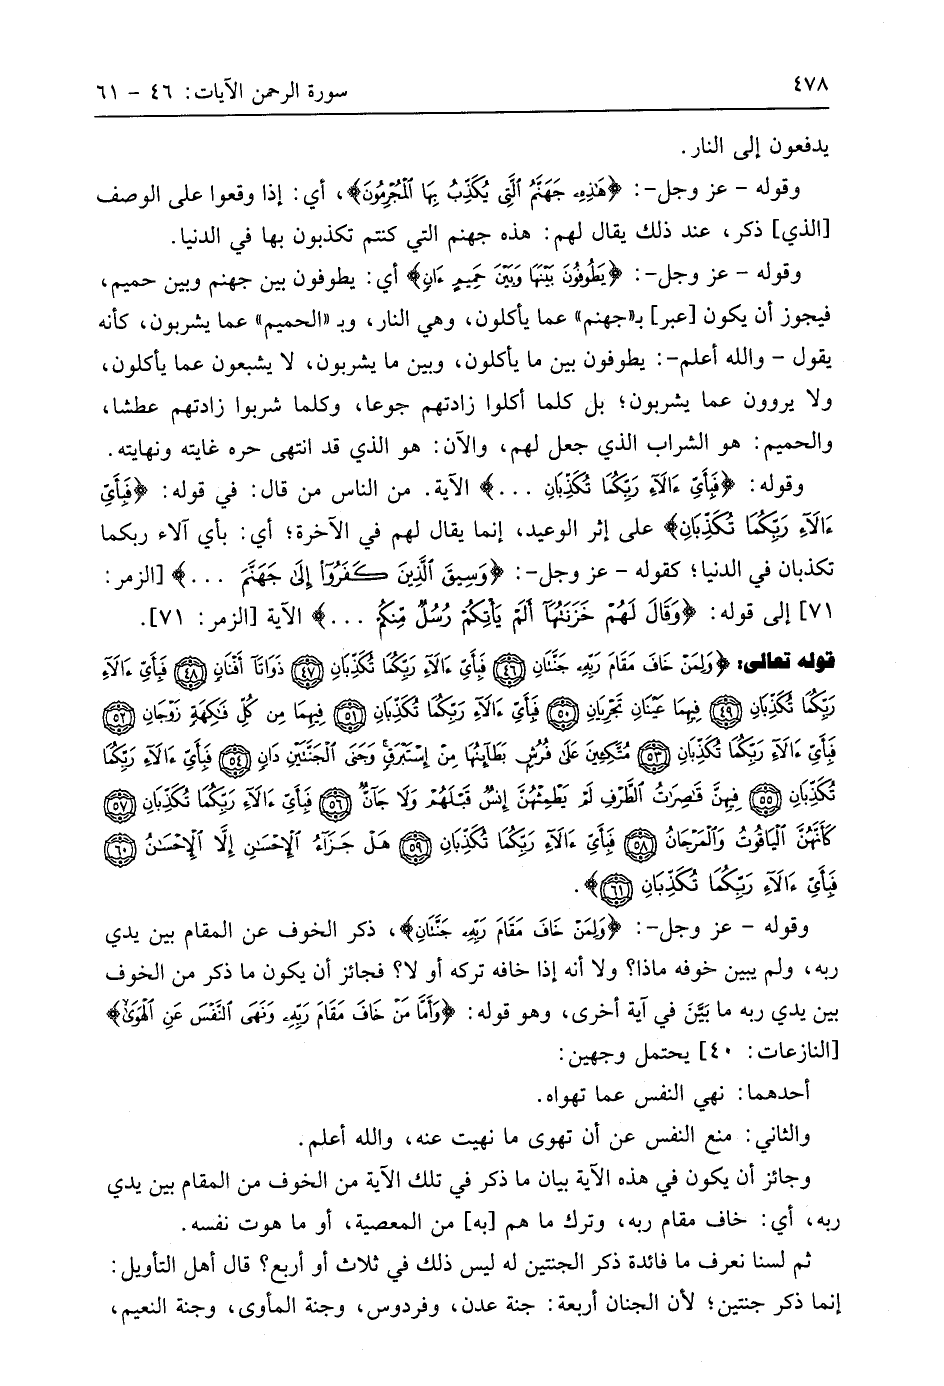 ٤٧٨
سورة الرحمن الآيات: ٤٦ - ٦١
يدفعون إلى النار.
وقوله - عز وجل-: ﴿هَٰذِهِۦ جَهَنَّمُ ٱلَّتِى يُكَذِّبُ بِهَا ٱلْمُجْرِمُونَ﴾، أي: إذا وقعوا على الوصف
[الذي] ذكر، عند ذلك يقال لهم: هذه جهنم التي كنتم تكذبون بها في الدنيا.
وقوله - عز وجل-: ﴿يَطُوفُونَ بَيْنَهَا وَبَيْنَ حَمِيمٍ ءَانٍ﴾ أي: يطوفون بين جهنم وبين حميم،
فيجوز أن يكون [عبر] بـ«جهنم» عما يأكلون، وهي النار، وبـ «الحميم» عما يشربون، كأنه
يقول - والله أعلم-: يطوفون بين ما يأكلون، وبين ما يشربون، لا يشبعون عما يأكلون،
ولا يروون عما يشربون؛ بل كلما أكلوا زادتهم جوعا، وكلما شربوا زادتهم عطشا،
والحميم: هو الشراب الذي جعل لهم، والآن: هو الذي قد انتهى حره غايته ونهايته.
وقوله: ﴿فَبِأَىِّ ءَالَآءِ رَبِّكُمَا تُكَذِّبَانِ ...﴾ الآية. من الناس من قال: في قوله: ﴿فَبِأَىِّ
ءَالَآءِ رَبِّكُمَا تُكَذِّبَانِ﴾ على إثر الوعيد، إنما يقال لهم في الآخرة؛ أي: بأي آلاء ربكما
تكذبان في الدنيا؛ كقوله - عز وجل-: ﴿وَسِيقَ ٱلَّذِينَ كَفَرُوٓا۟ إِلَىٰ جَهَنَّمَ ...﴾ [الزمر:
٧١] إلى قوله: ﴿وَقَالَ لَهُمْ خَزَنَتُهَآ أَلَمْ يَأْتِكُمْ رُسُلٌ مِّنكُمْ ...﴾ الآية [الزمر: ٧١].
قوله تعالى: ﴿وَلِمَنْ خَافَ مَقَامَ رَبِّهِۦ جَنَّتَانِ ٤٦ فَبِأَىِّ ءَالَآءِ رَبِّكُمَا تُكَذِّبَانِ ٤٧ ذَوَاتَآ أَفْنَانٍ ٤٨ فَبِأَىِّ ءَالَآءِ
رَبِّكُمَا تُكَذِّبَانِ ٤٩ فِيهِمَا عَيْنَانِ تَجْرِيَانِ ٥٠ فَبِأَىِّ ءَالَآءِ رَبِّكُمَا تُكَذِّبَانِ ٥١ فِيهِمَا مِن كُلِّ فَٰكِهَةٍ زَوْجَانِ ٥٢
فَبِأَىِّ ءَالَآءِ رَبِّكُمَا تُكَذِّبَانِ ٥٣ مُتَّكِـِٔينَ عَلَىٰ فُرُشٍۭ بَطَآئِنُهَا مِنْ إِسْتَبْرَقٍ ۚ وَجَنَى ٱلْجَنَّتَيْنِ دَانٍ ٥٤ فَبِأَىِّ ءَالَآءِ رَبِّكُمَا
تُكَذِّبَانِ ٥٥ فِيهِنَّ قَٰصِرَٰتُ ٱلطَّرْفِ لَمْ يَطْمِثْهُنَّ إِنسٌ قَبْلَهُمْ وَلَا جَآنٌّ ٥٦ فَبِأَىِّ ءَالَآءِ رَبِّكُمَا تُكَذِّبَانِ ٥٧
كَأَنَّهُنَّ ٱلْيَاقُوتُ وَٱلْمَرْجَانُ ٥٨ فَبِأَىِّ ءَالَآءِ رَبِّكُمَا تُكَذِّبَانِ ٥٩ هَلْ جَزَآءُ ٱلْإِحْسَٰنِ إِلَّا ٱلْإِحْسَٰنُ ٦٠
فَبِأَىِّ ءَالَآءِ رَبِّكُمَا تُكَذِّبَانِ ٦١﴾.
وقوله - عز وجل-: ﴿وَلِمَنْ خَافَ مَقَامَ رَبِّهِۦ جَنَّتَانِ﴾، ذكر الخوف عن المقام بين يدي
ربه، ولم يبين خوفه ماذا؟ ولا أنه إذا خافه تركه أو لا؟ فجائز أن يكون ما ذكر من الخوف
بين يدي ربه ما بَيَّنَ في آية أخرى، وهو قوله: ﴿وَأَمَّا مَنْ خَافَ مَقَامَ رَبِّهِۦ وَنَهَى ٱلنَّفْسَ عَنِ ٱلْهَوَىٰ﴾
[النازعات: ٤٠] يحتمل وجهين:
أحدهما: نهي النفس عما تهواه.
والثاني: منع النفس عن أن تهوى ما نهيت عنه، والله أعلم.
وجائز أن يكون في هذه الآية بيان ما ذكر في تلك الآية من الخوف من المقام بين يدي
ربه، أي: خاف مقام ربه، وترك ما هم [به] من المعصية، أو ما هوت نفسه.
ثم لسنا نعرف ما فائدة ذكر الجنتين له ليس ذلك في ثلاث أو أربع؟ قال أهل التأويل:
إنما ذكر جنتين؛ لأن الجنان أربعة: جنة عدن، وفردوس، وجنة المأوى، وجنة النعيم،